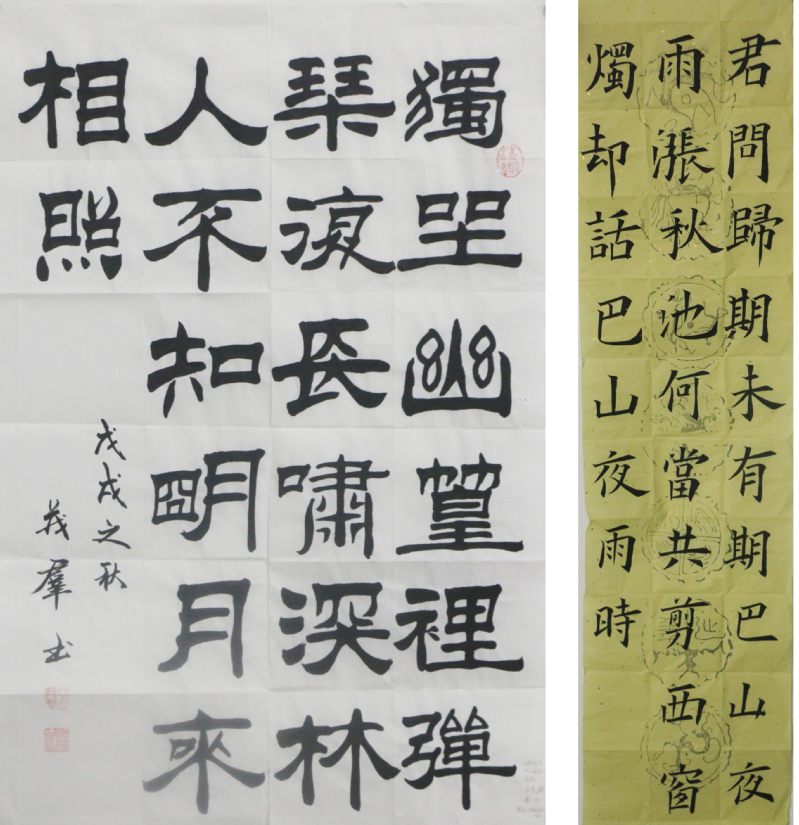 獨坐幽篁裡彈
琴復長嘯深林
人不知明月來
相照
戊戌之秋
羣书
君問歸期未有期巴山夜
雨漲秋池何當共剪西窗
燭却話巴山夜雨時